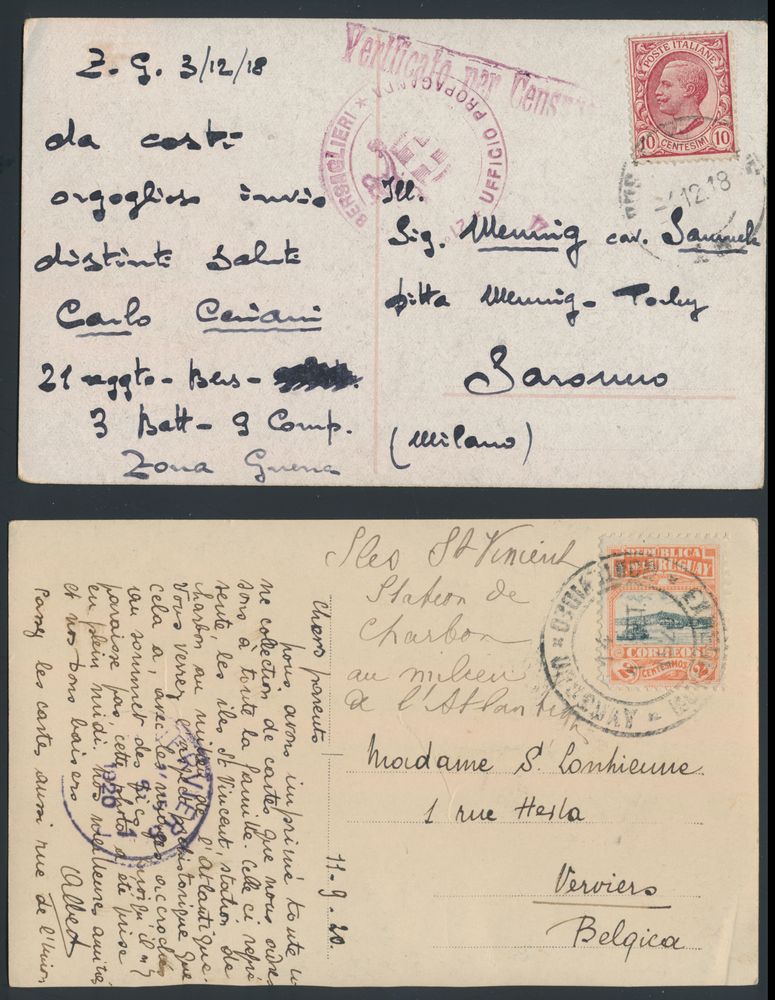 Z. G. 3/12/18
da costì
orgoglioso invio
distinti saluti
Carlo Ceriani
21 reggto - Bers -
3 Batt - 9 Comp.
Zona Guerra
Verificato per Censura
BERSAGLIERI * UFFICIO PROPAGANDA
POSTE ITALIANE
10 CENTESIMI 10
12.18
Ill.
Sig. cav. Samuele
Ditta
Saronno
(Milano)
Iles St Vincent
Station de
Charbon
au milieu
de l'Atlantique
REPUBLICA
DEL URUGUAY
CORREOS
CENTESIMOS
MONTEVIDEO
URUGUAY
Chers parents
nous avons imprimé toute u
ne colection de cartes que nous
sons à toute la famille. Celle ci repré
sente, les îles St Vincent, station de
charbon au milieu de l'Atlantique.
Vous verrez l'aspect préhistorique que
cela a, avec les nuages accrochés
au sommet des pics, quoiqu'il n'y
paraisse pas cette photo a été prise
en plein midi. Nos meilleures amitiés
et nos bons baisers
Albert
les cartes aussi rue de l'Union
VERVIERS
1920
11-9-20
Madame S. Lonhienne
1 rue Hesla
Verviers
Belgica